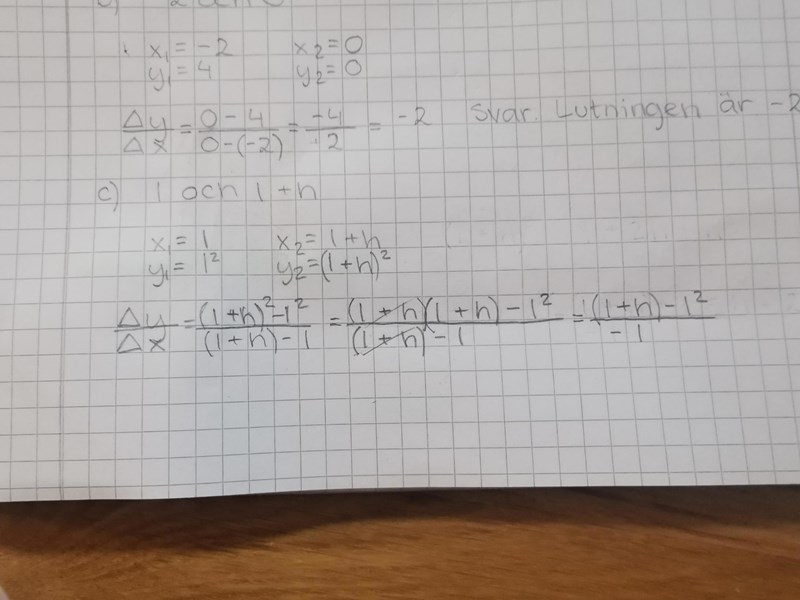 x₁ = -2 x₂ = 0
y₁ = 4 y₂ = 0
Δy/Δx = (0 - 4)/(0-(-2)) = -4/2 = -2 Svar. Lutningen är -2
c) 1 och 1 + h
x₁ = 1 x₂ = 1 + h
y₁ = 1² y₂ = (1+h)²
Δy/Δx = ((1+h)² - 1²)/((1+h) - 1) = ((1+h)(1+h) - 1²)/((1+h) - 1) = ((1+h) - 1²)/(-1)